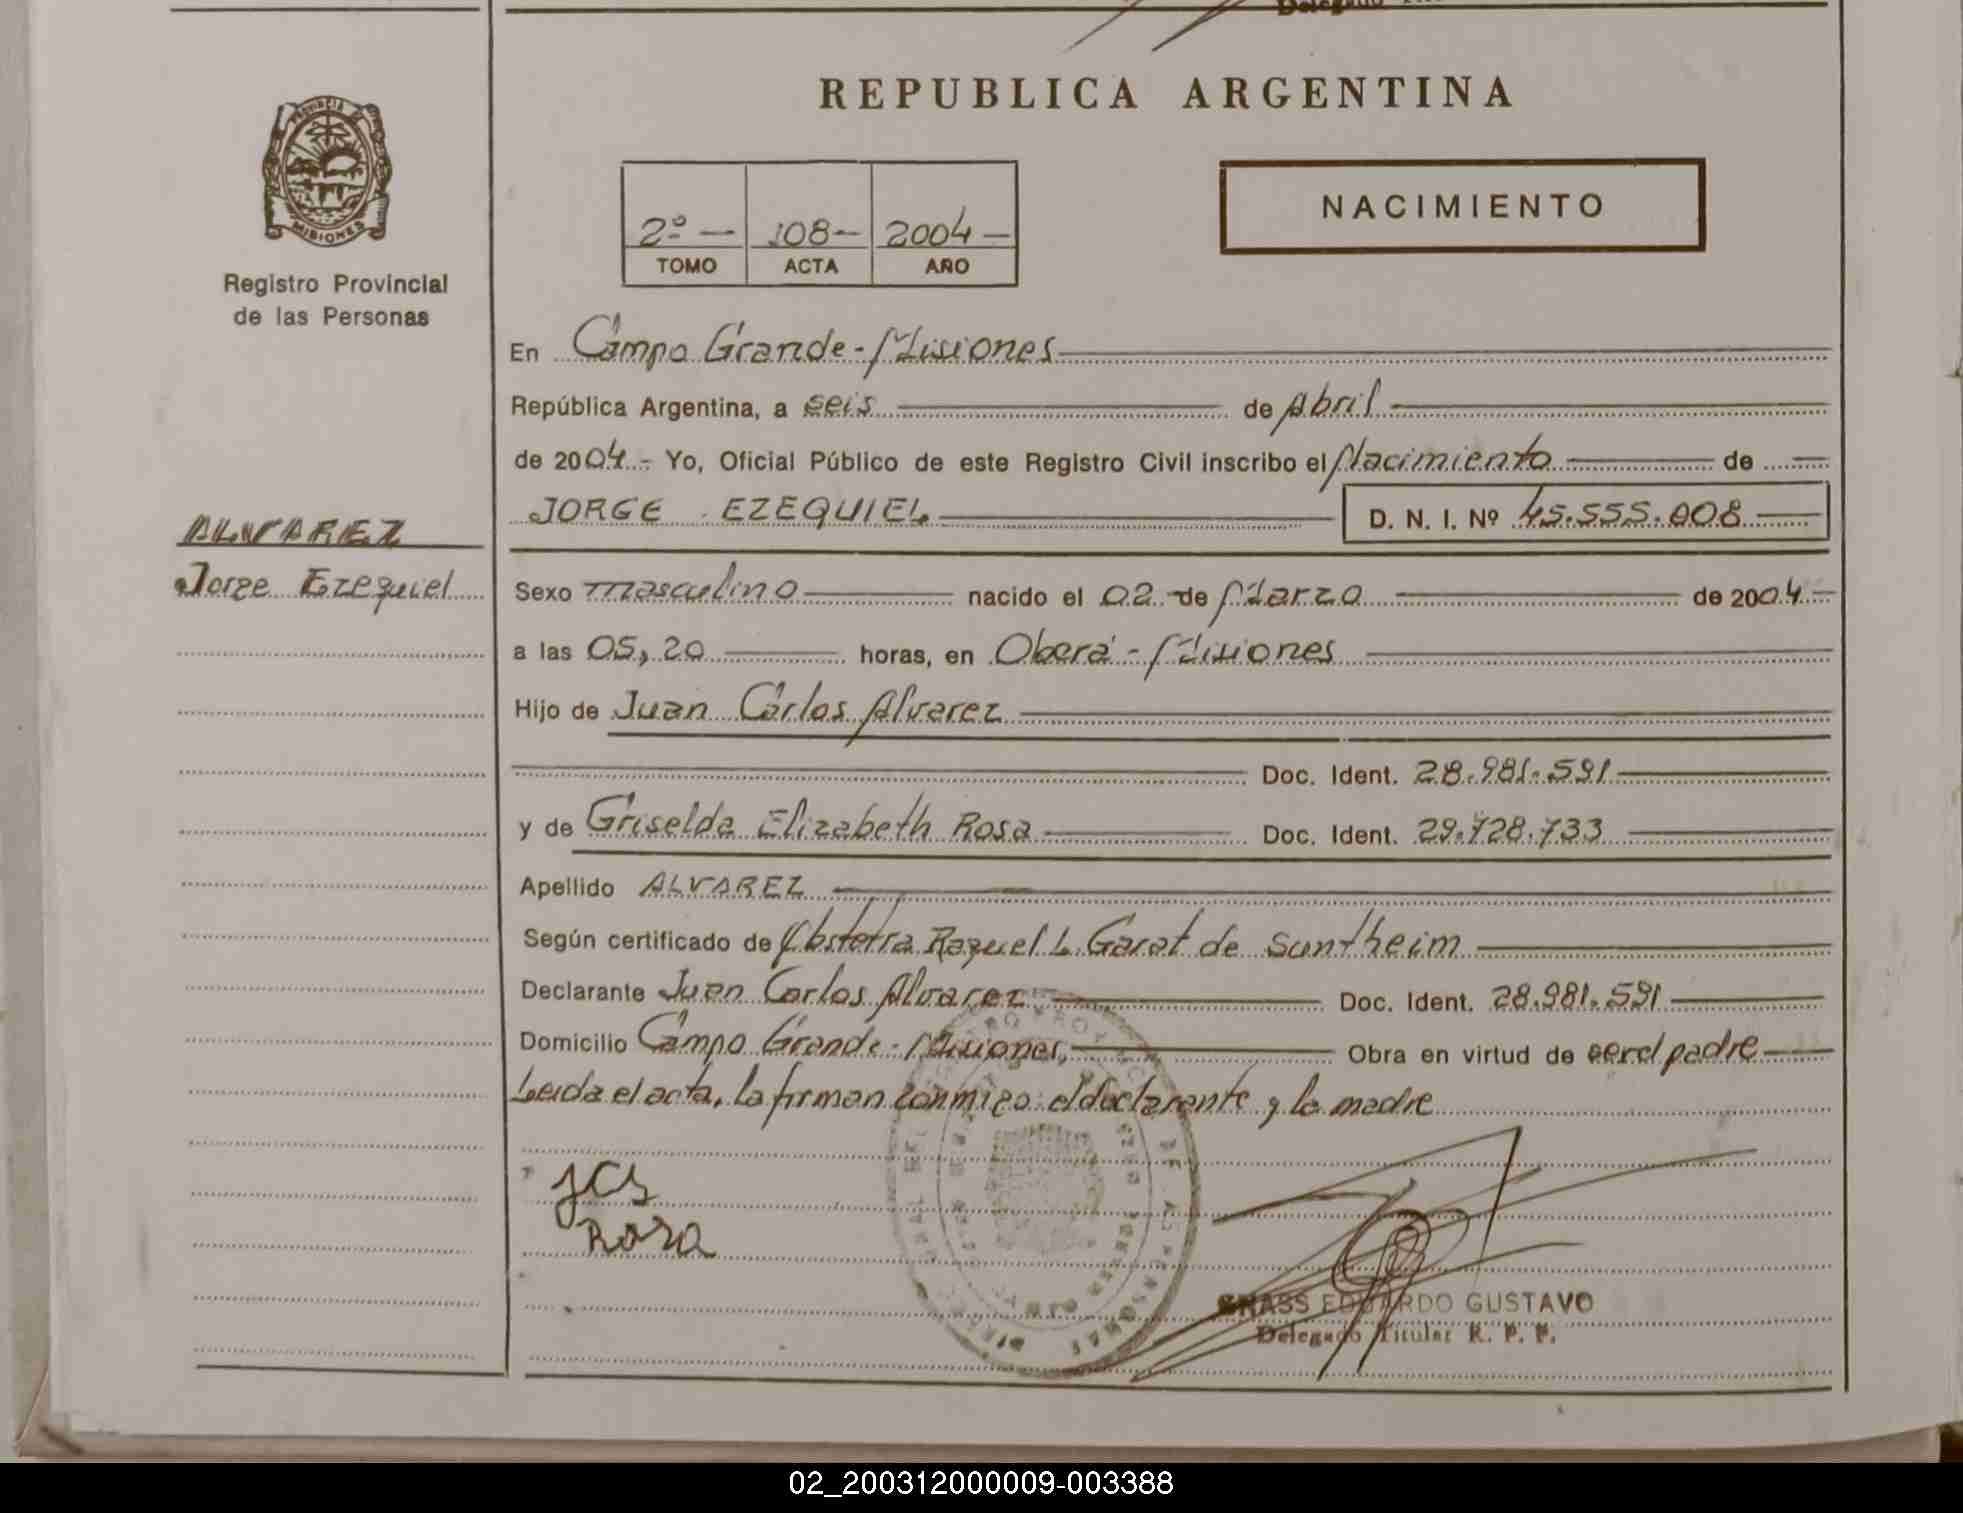 REPUBLICA ARGENTINA
PROVINCIA DE
MISIONES
Registro Provincial
de las Personas
2º — 108 — 2004 —
TOMO ACTA AÑO
NACIMIENTO
En Campo Grande - Misiones
República Argentina, a seis de Abril
de 2004.- Yo, Oficial Público de este Registro Civil inscribo el Nacimiento de
JORGE EZEQUIEL D. N. I. Nº 45.555.008
ALVAREZ
Jorge Ezequiel
Sexo masculino nacido el 02 de Marzo de 2004
a las 05,20 horas, en Oberá - Misiones
Hijo de Juan Carlos Alvarez
Doc. Ident. 28.981.591
y de Griselda Elizabeth Rosa Doc. Ident. 29.728.733
Apellido ALVAREZ
Según certificado de Obstetra Raquel L. Garat de Suntheim
Declarante Juan Carlos Alvarez Doc. Ident. 28.981.591
Domicilio Campo Grande - Misiones, Obra en virtud de ser el padre
Leída el acta, la firman conmigo: el declarante y la madre
JCA
Rosa
EDUARDO GUSTAVO
Delegado Titular R. P. P.
02_200312000009-003388